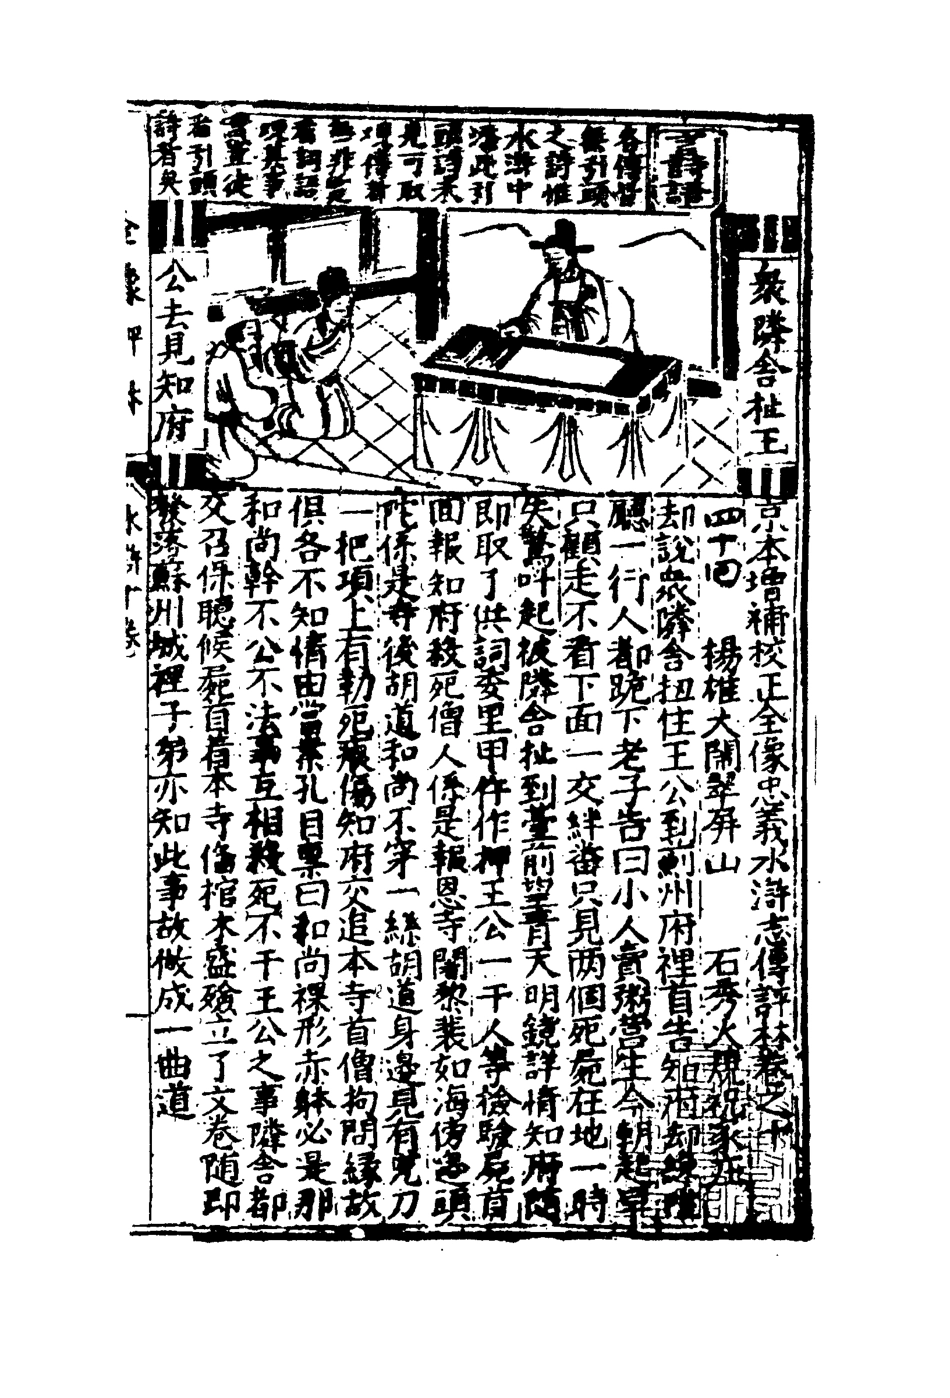 詩詞
各傳皆
無引頭
之詩惟
水滸中
添此引
頭詩未
見可取
詩者矣
衆隣舍扯王
公去見知府
京本增補校正全像忠義水滸志傳評林卷之十
四十回　楊雄大鬧翠屏山　石秀火燒祝家庄
却說衆隣舍扭住王公到蓟州府裡首告知府却纔陞
廳一行人都跪下老子告曰小人賣粥營生今朝起早
只顧走不看下面一交絆番只見两個死屍在地一時
失驚叫起被隣舍扯到臺前望青天明鏡詳情知府随
即取了供詞委里甲仵作押王公一干人等檢驗屍首
回報知府殺死僧人係是報恩寺闍黎裴如海傍邉頭
陀係是寺後胡道和尚不穿一絲胡道身邉見有兇刀
一把項上有勒死痕傷知府交追本寺首僧拘問緣故
俱各不知情由當案孔目禀曰和尚裸形赤躰必是那
和尚幹不公不法事互相殺死不干王公之事隣舍都
交召保聽候屍首着本寺俻棺木盛殮立了文卷随即
發落蘇州城裡子弟亦知此事故做成一曲道
全像評林
水滸十卷